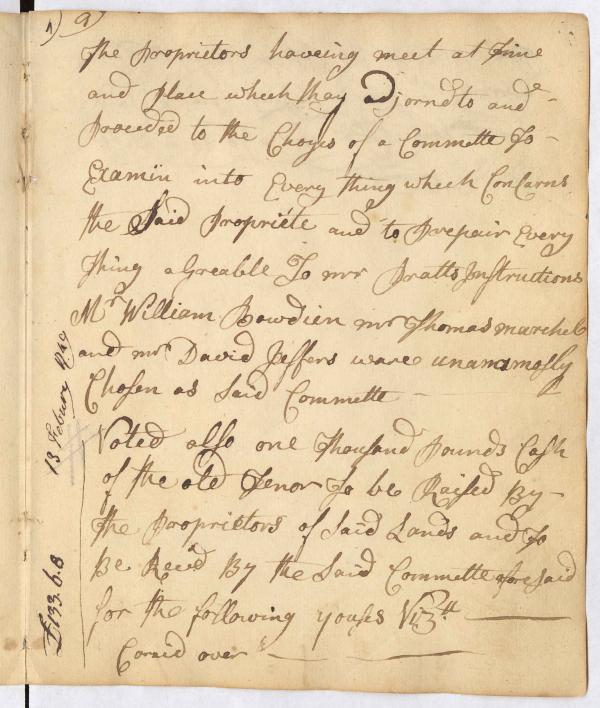 9)
the Proprietors haveing meet at Time
and Place which thay Djorned to and
Proceded to the Choyes of a Commette To
Examin into Every thing which Concarns
the Said Propriete and to Prepair Every
thing aGreable To mr Pratts Instructions
Mr William Bowdien mr Thomas marchel
and mr David Jeffers ware unanamosly
Chosen as Said Commette
Voted also one Thousand Pounds Cash
of the old Tenor To be Raised By
the Proprietors of Said Lands and To
Be Recd By the Said Commette afore Said
for the following youses Vizt
Coraid over
13 Febuary 1749
£133.6.8